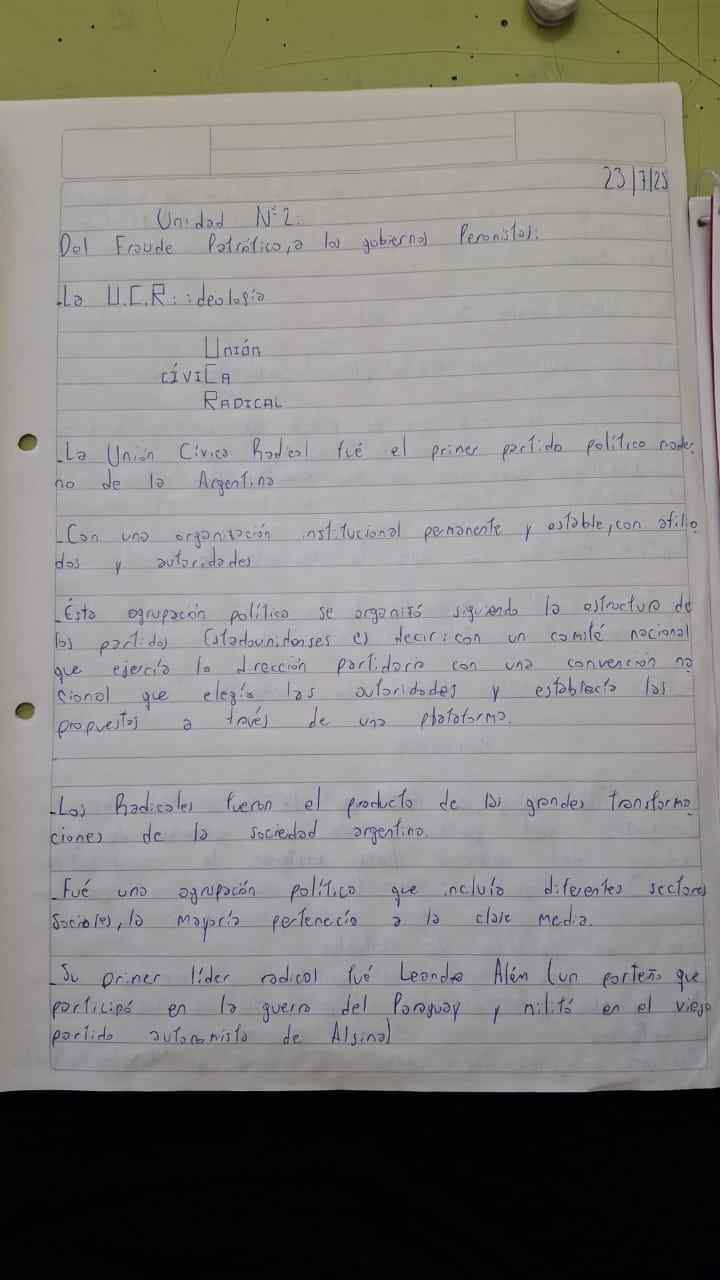 23/7/25
Unidad N°2:
Del Fraude Patriótico, a los gobiernos Peronistas:
-La U.C.R: ideología
Unión
CÍVICA
RADICAL
-La Unión Cívica Radical fué el primer partido político moder
no de la Argentina
-Con una organización institucional permanente y estable, con afilia
dos y autoridades
-Esta agrupación política se organizó siguiendo la estructura de
los partidos Estadounidenses es decir: con un comité nacional
que ejercía la dirección partidaria con una convención na
cional que elegía las autoridades y establecía las
propuestas a través de una plataforma.
-Los Radicales fueron el producto de las grandes transforma
ciones de la sociedad argentina.
-Fué una agrupación política que incluía diferentes sectores
sociales, la mayoría pertenecía a la clase media.
-Su primer líder radical fué Leandro Além (un porteño que
participó en la guerra del Paraguay y militó en el viejo
partido autonomista de Alsina)